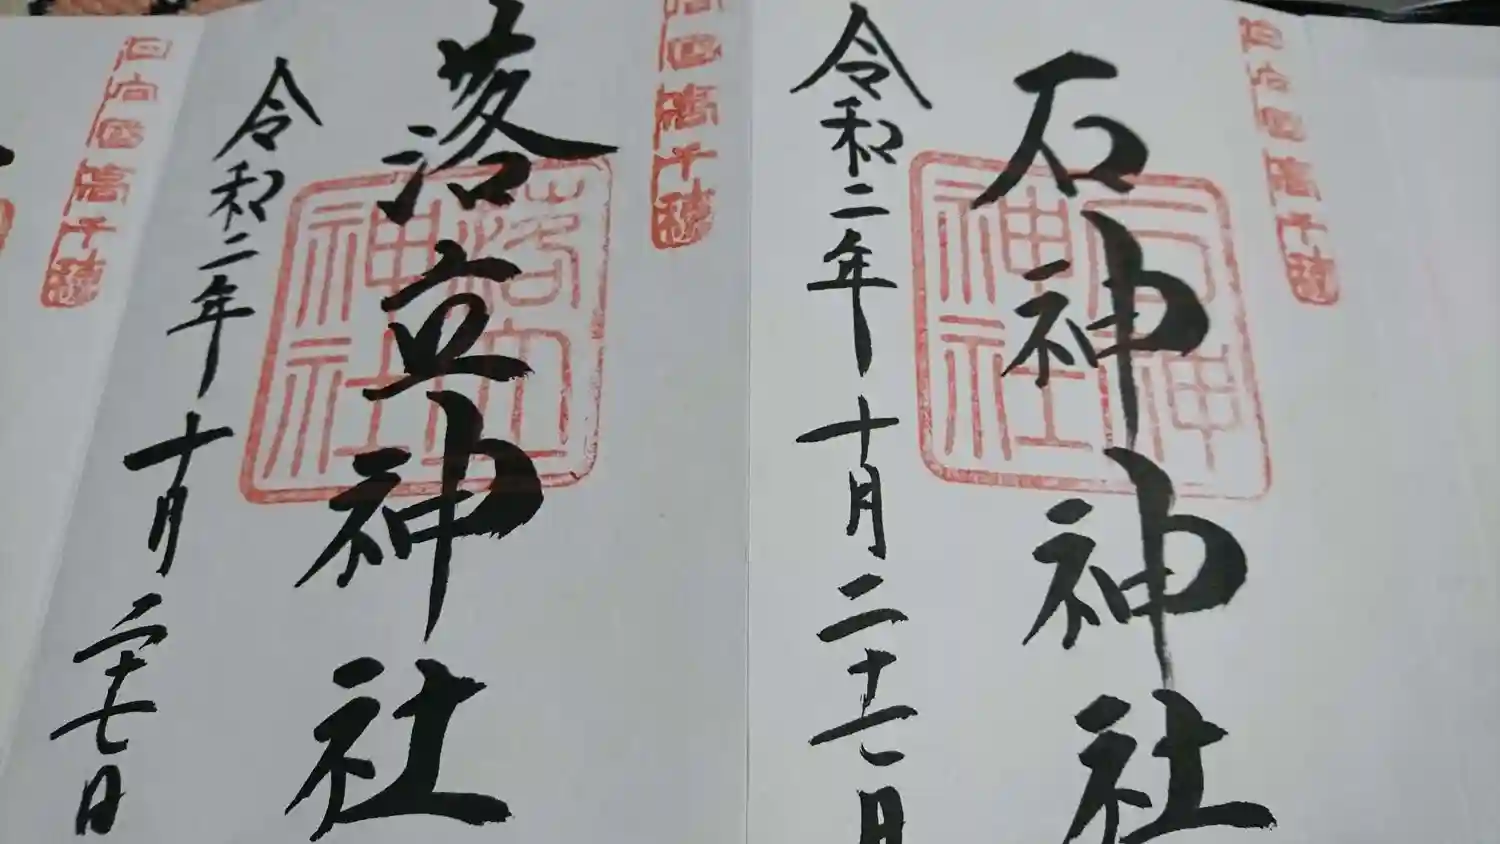 日向国高千穂
石神神社
令和二年十月二十七日
日向国高千穂
落立神社
令和二年十月二十七日
日向国高千穂
石神神社
落立神社